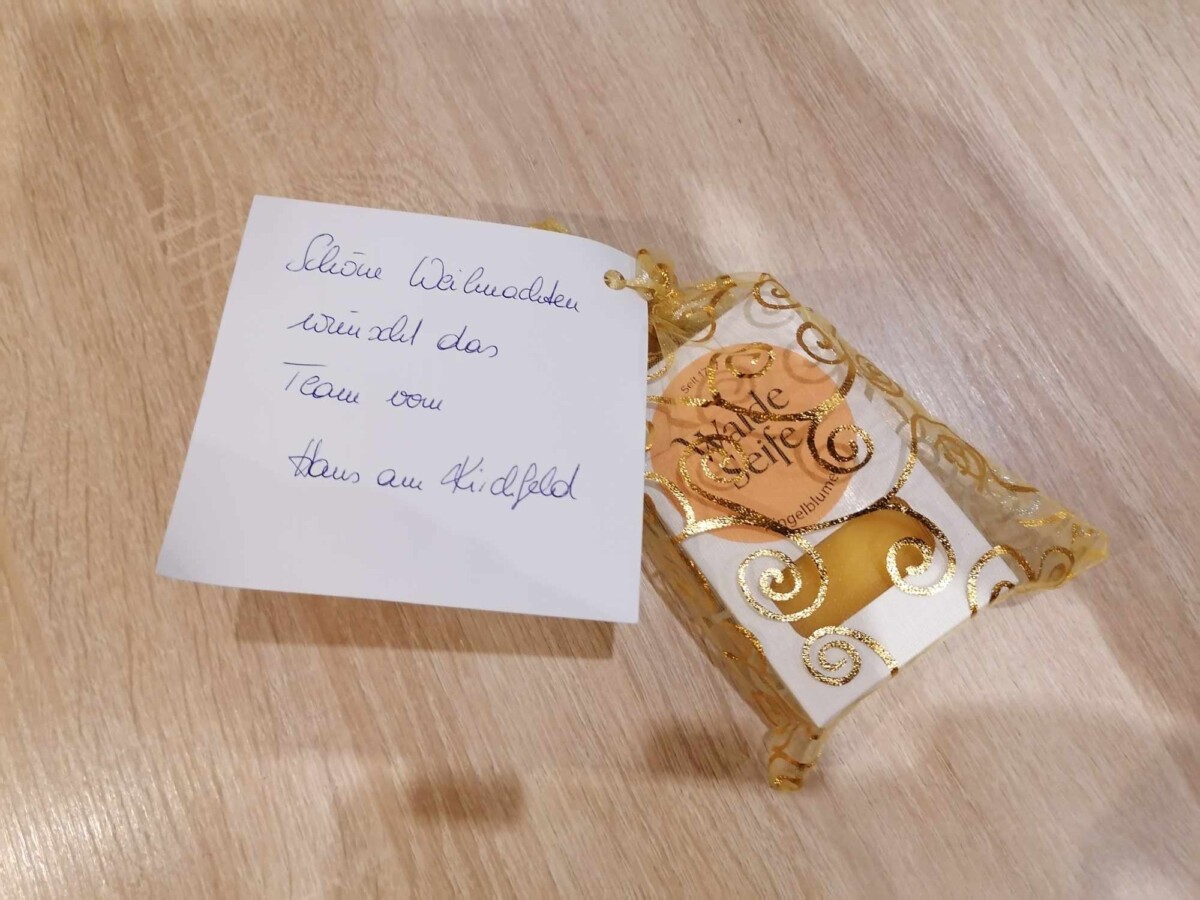 Schöne Weihnachten
wünscht das
Team vom
Haus am Kirchfeld
Seit
Walde
Seife
ngelblume